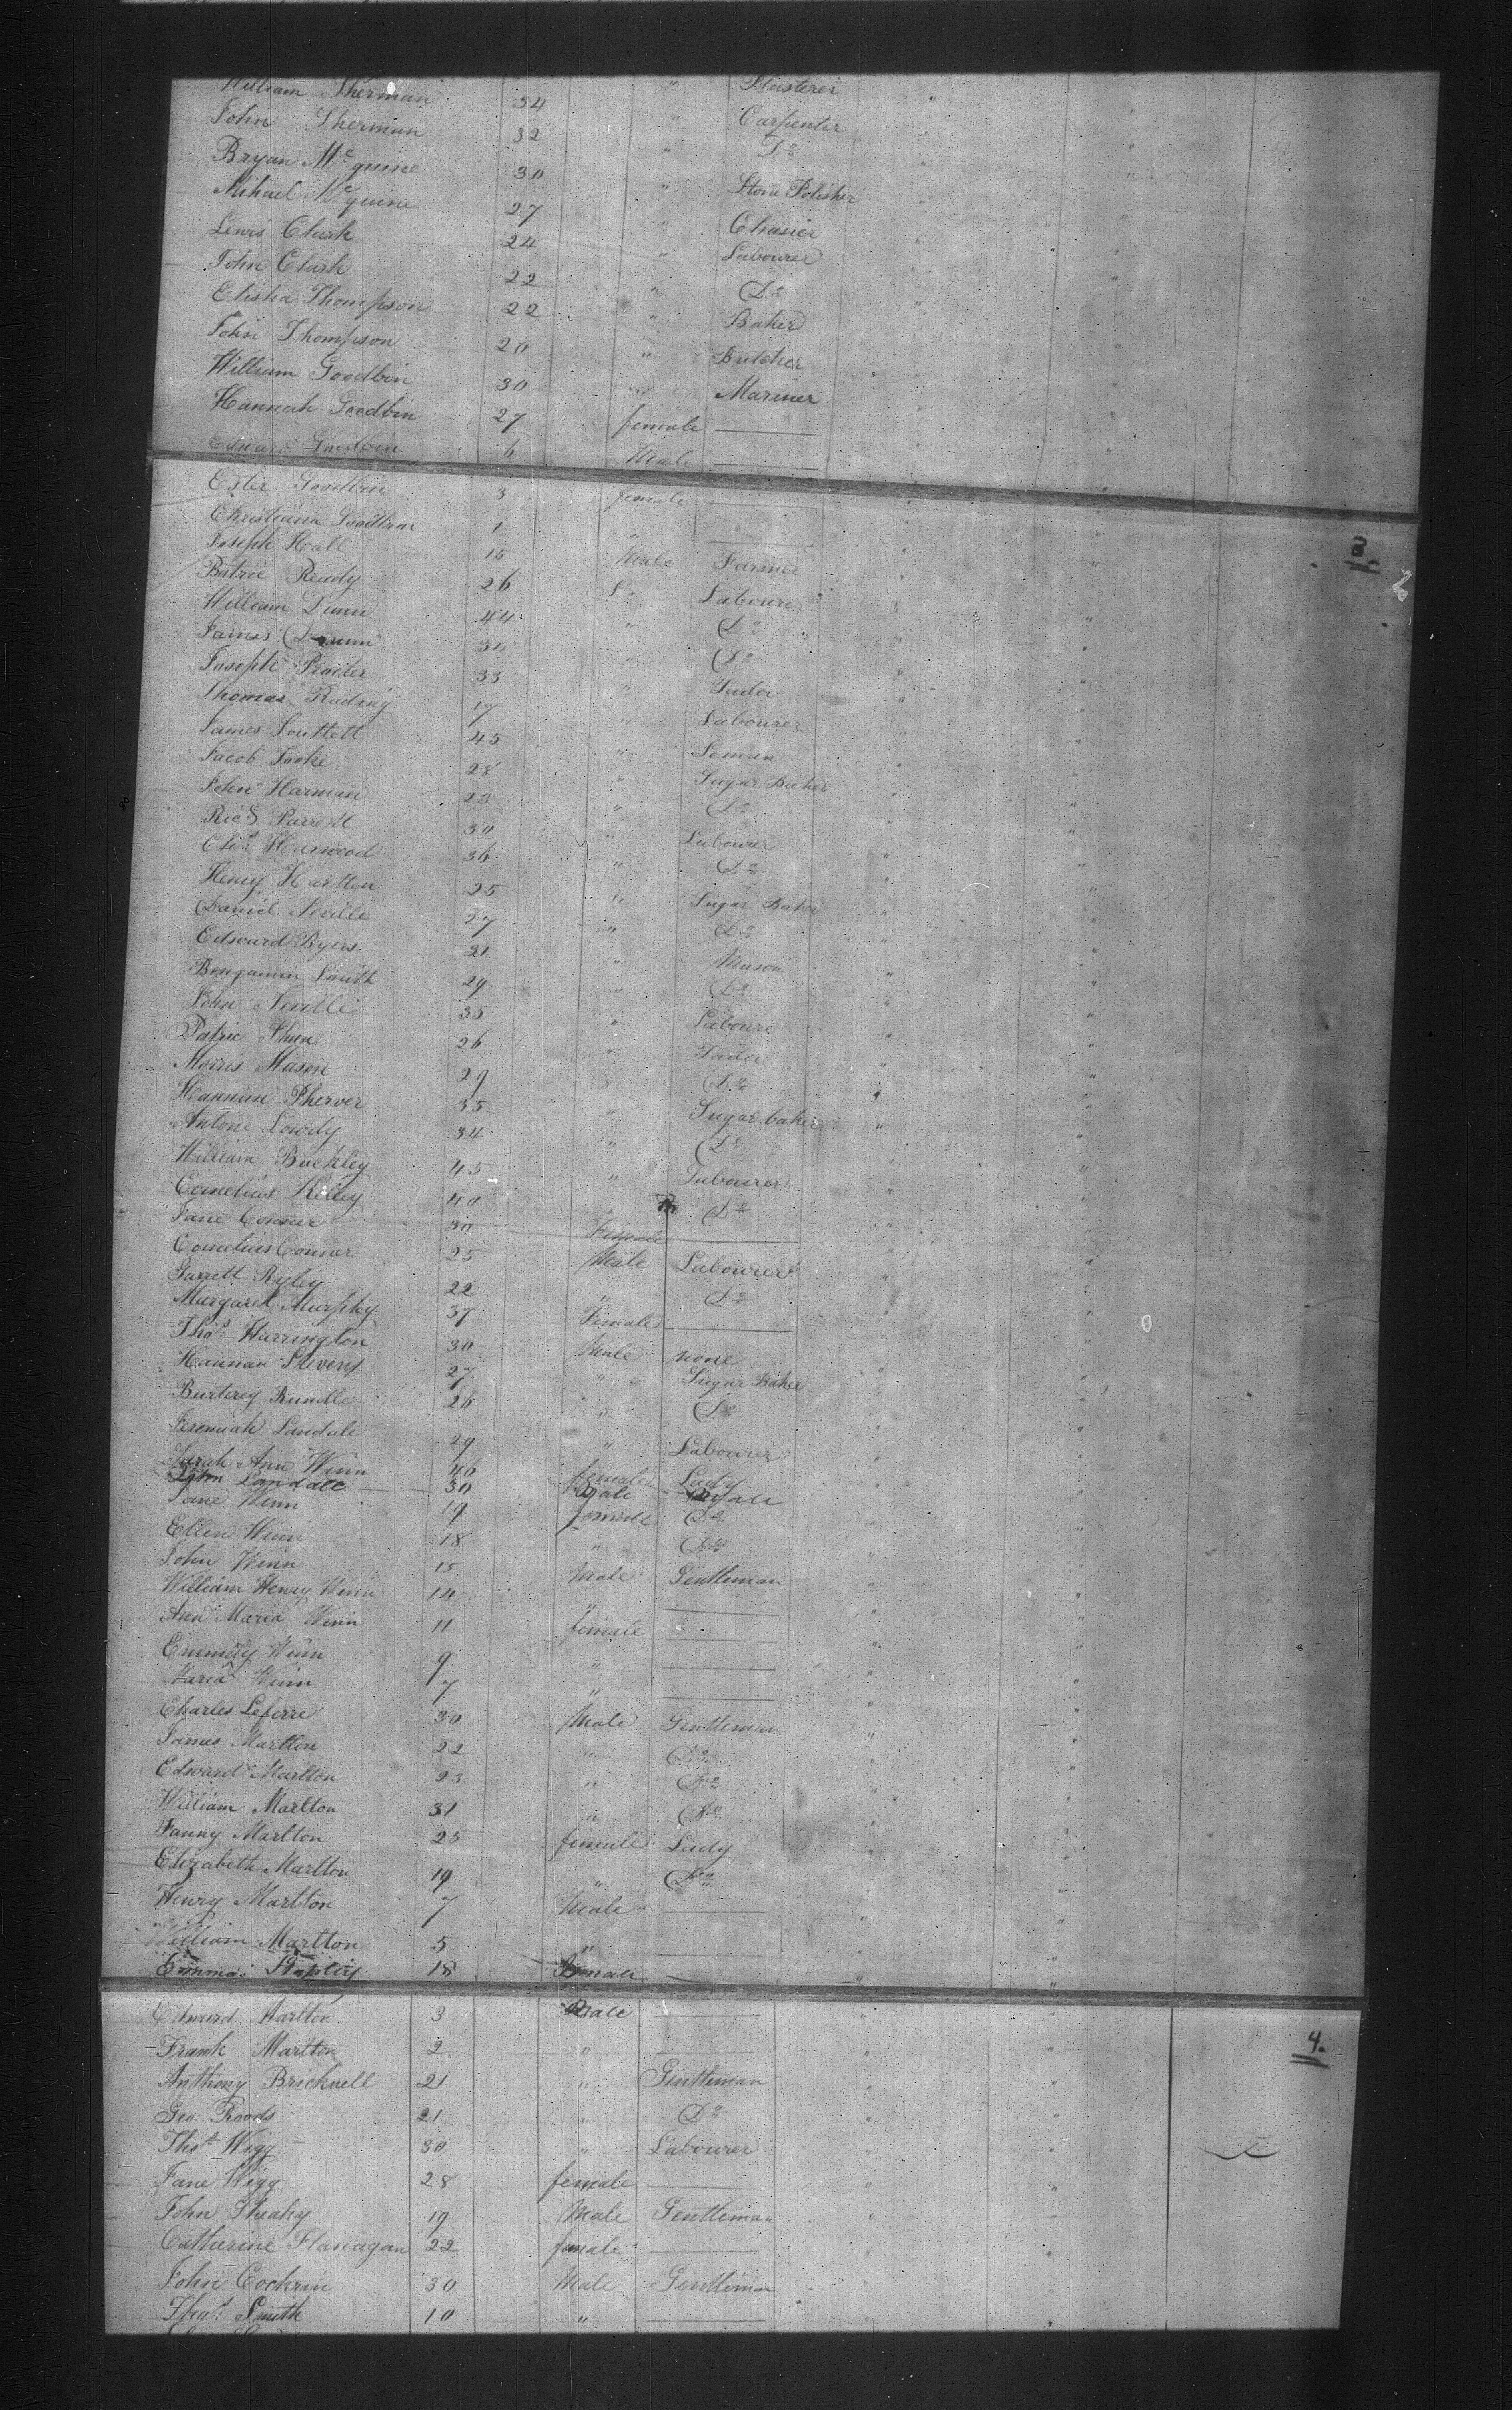 William Sherman 34 " Plasterer " "
John Sherman 32 " Carpenter " "
Bryan Mc guine 30 " Do " "
Mihael Mc guine 27 " Stone Polisher " "
Lewis Clark 24 " "
John Clark 22 " Labourer " "
Elisha Thompson 22 " Do " "
John Thompson 20 " Baker " "
William Goodbin 30 " Butcher " "
Hannah Goodbin 27 female Mariner
Edward Goodbin 6 Male
Ester Goodbin 3 female " "
Christiana Goodbin 1 "
Joseph Hall 15 Male Farmer " " 3.
Patric Ready 26 Labourer " "
William Dunn 44 " Do " "
James Dunn 34 " Do " "
Joseph Procter 33 " Tailor " "
Thomas Ruding 17 " Labourer " "
James 45 " Seman " "
Jacob Tooke 28 " Sugar Baker " "
John Harman 23 " Do " "
Ricd Parrott 30 " Labourer " "
Harwood 36 " Do " "
Henry Hartten 25 " Sugar Baker " "
Daniel Neville 27 " Do " "
Edward Byers 21 " Mason " "
Benjamin Smith 29 " Do " "
John Neville 35 " Laboure " "
Patric 26 " Tailor " "
Morris Mason 29 " Do " "
Pherver 35 " Sugar baker " "
Antone Lowdy 34 " Do " "
William Buckley 45 " Labourer " "
Cornelius Kelley 40 " Do " "
Jane Conner 30 Female " "
Cornelius Conner 25 Male Labourer " "
Garrett Ryley 22 " Do " "
Margaret Murphy 37 Female " "
Thos. Harrington 30 Male none " "
Hannan Stivens 27 " Sugar Baker " "
Rundle 26 " Do " "
Jeremiah Landale 29 " Labourer " "
Sarah Ann Winn 46 female Lady " "
John Landale 30 Male
Jane Winn 19 female Do " "
Ellen Winn 18 " Do " "
John Winn 15 Male Gentleman " "
William Henry Winn 14 " " "
Ann Maria Winn 11 female " "
Emmely Winn 9 " " "
Maria Winn 7 " " "
Charles Leferre 30 Male Gentleman " "
James Martton 22 " Do " "
Edward Martton 23 " Do " "
William Martton 31 " Do " "
Fanny Martton 25 female Lady " "
Elizabeth Martton 19 " Do " "
Henry Martton 7 Male " "
William Martton 5 " " "
Emma Stapley 18 Female " "
Edward Martton 3 Male " "
Frank Martton 2 " " " 4.
Anthony Bricknell 21 " Gentleman " "
Geo: Roods 21 " Do " "
Thos Wigg 30 " Labourer " "
Jane Wigg 28 female " "
John Sheahy 19 Male Gentleman " "
Catherine Flanagan 22 female " "
John Cockrin 30 Male Gentleman " "
Thos: Smith 10 " " "